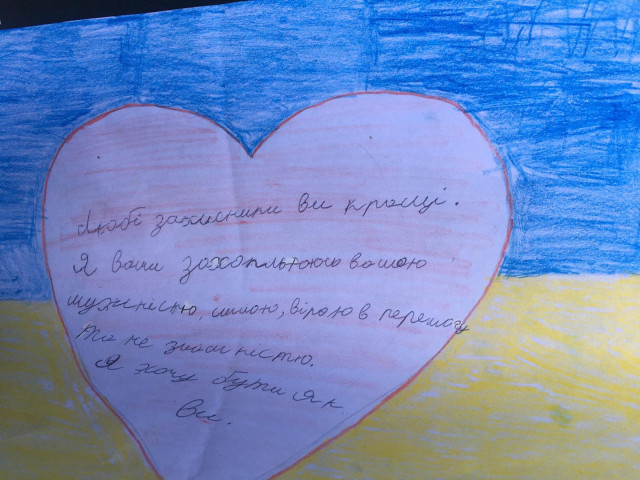 Любі захисники ви кращі.
Я вами захопльююсь вашою
мужністю, силою, вірою в перемогу
та не
Я хочу бути як
ви.